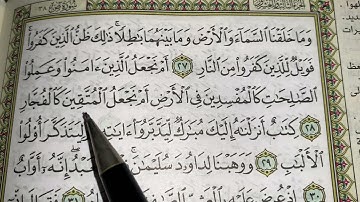 وَمَا خَلَقْنَا السَّمَاءَ وَالْأَرْضَ وَمَا بَيْنَهُمَا بَاطِلًا ۚ ذَٰلِكَ ظَنُّ الَّذِينَ كَفَرُوا
فَوَيْلٌ لِلَّذِينَ كَفَرُوا مِنَ النَّارِ ٢٧ أَمْ نَجْعَلُ الَّذِينَ ءَامَنُوا وَعَمِلُوا
الصَّالِحَاتِ كَالْمُفْسِدِينَ فِي الْأَرْضِ أَمْ نَجْعَلُ الْمُتَّقِينَ كَالْفُجَّارِ
٢٨ كِتَابٌ أَنْزَلْنَاهُ إِلَيْكَ مُبَارَكٌ لِيَدَّبَّرُوا ءَايَاتِهِ وَلِيَتَذَكَّرَ أُولُوا
الْأَلْبَابِ ٢٩ وَوَهَبْنَا لِدَاوُودَ سُلَيْمَانَ ۚ الْعَبْدُ إِنَّهُ أَوَّابٌ
٣٠ إِذْ عُرِضَ عَلَيْهِ